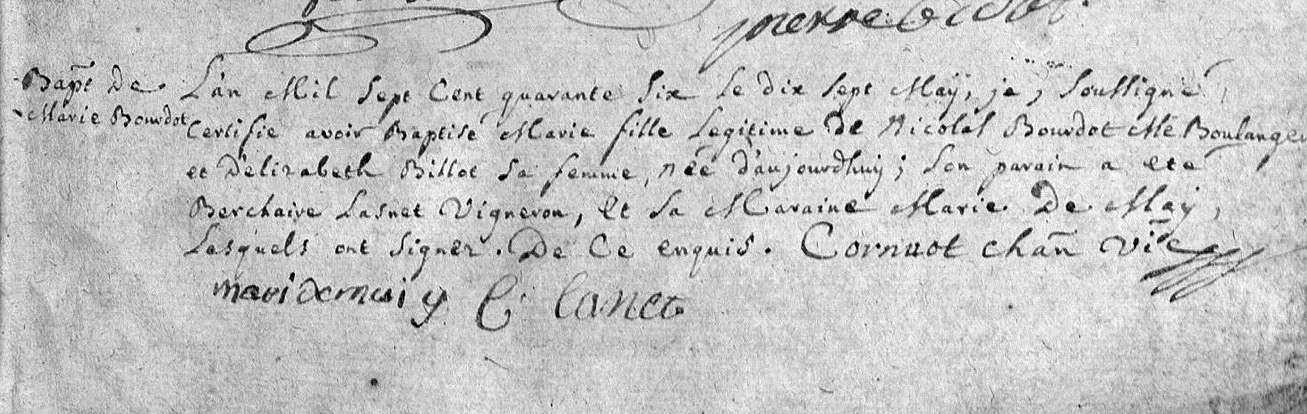 pierre
Bapt. De
Marie Bourdot
L'an Mil Sept Cent quarante Six Le dix Sept Maÿ, je, Soussigné,
Certifie avoir Baptisé Marie fille Legitime de Nicolas Bourdot Me Boulanger
et D'elizabeth Billot Sa femme, née d'aujourdhuy; Son parain a eté
Berchaire Lasnet Vigneron, Et Sa Maraine Marie De Maÿ,
Lesquels ont Signez. De Ce enquis. Cornuot chan vic
B lanet